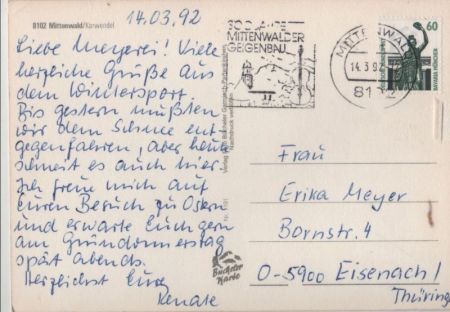 8102 Mittenwald/Karwendel
14.03.92
Liebe Meyerei! Viele
herzliche Grüße aus
dem Wintersport.
Bis gestern mußten
wir dem Schnee ent
gegenfahren, aber heute
schneit es auch hier.
Ich freue mich auf
Euren Besuch zu Ostern
und erwarte Euch gern
am Gründonnerstag
spät abends.
Herzlichst Eure
Renate
300 JAHRE
MITTENWALDER
GEIGENBAU
MITTENWALD
14.3.92
8102
60
BAVARIA MÜNCHEN
Nachdruck verboten
Frau
Erika Meyer
Bornstr. 4
O-5900 Eisenach/
Thüring
Bücheler
Karte